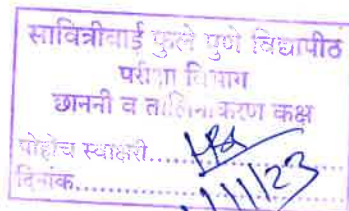 सावित्रीबाई फुले पुणे विद्यापीठ
परीक्षा विभाग
छाननी व तालिकाकरण कक्ष
पोहोच स्वाक्षरी...........
दिनांक...........
/11/23